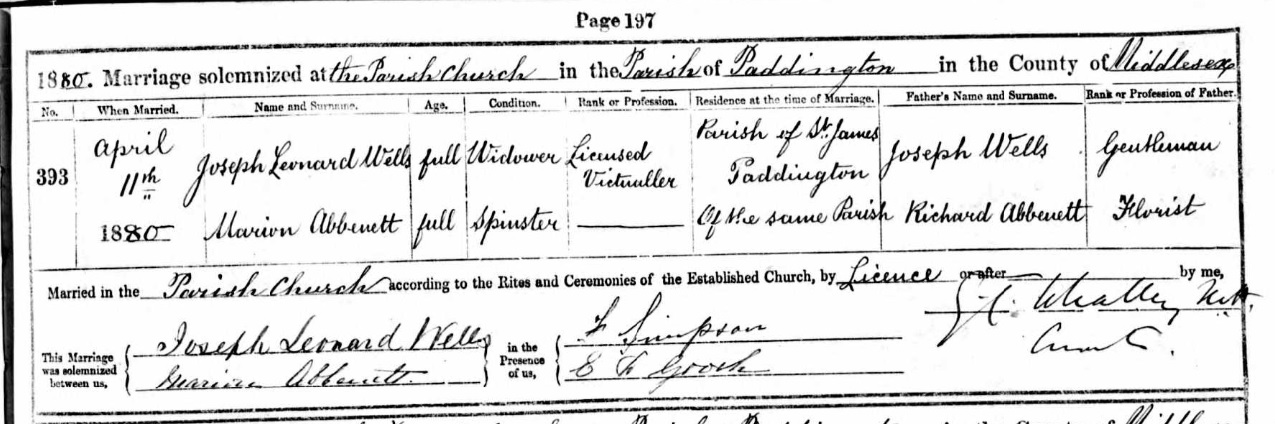 Page 197
1880. Marriage solemnized at the Parish Church in the Parish of Paddington in the County of Middlesex
No. When Married. Name and Surname. Age. Condition. Rank or Profession. Residence at the time of Marriage. Father's Name and Surname. Rank or Profession of Father.
393 April 11th 1880 Joseph Leonard Wells full Widower Licensed Victualler Parish of St. James Paddington Joseph Wells Gentleman
Marion Abbenett full Spinster Of the same Parish Richard Abbenett Florist
Married in the Parish Church according to the Rites and Ceremonies of the Established Church, by Licence or after by me,
This Marriage was solemnized between us, Joseph Leonard Wells in the Presence of us, F Simpson
Marion Abbenett E F Gooch
Curate.